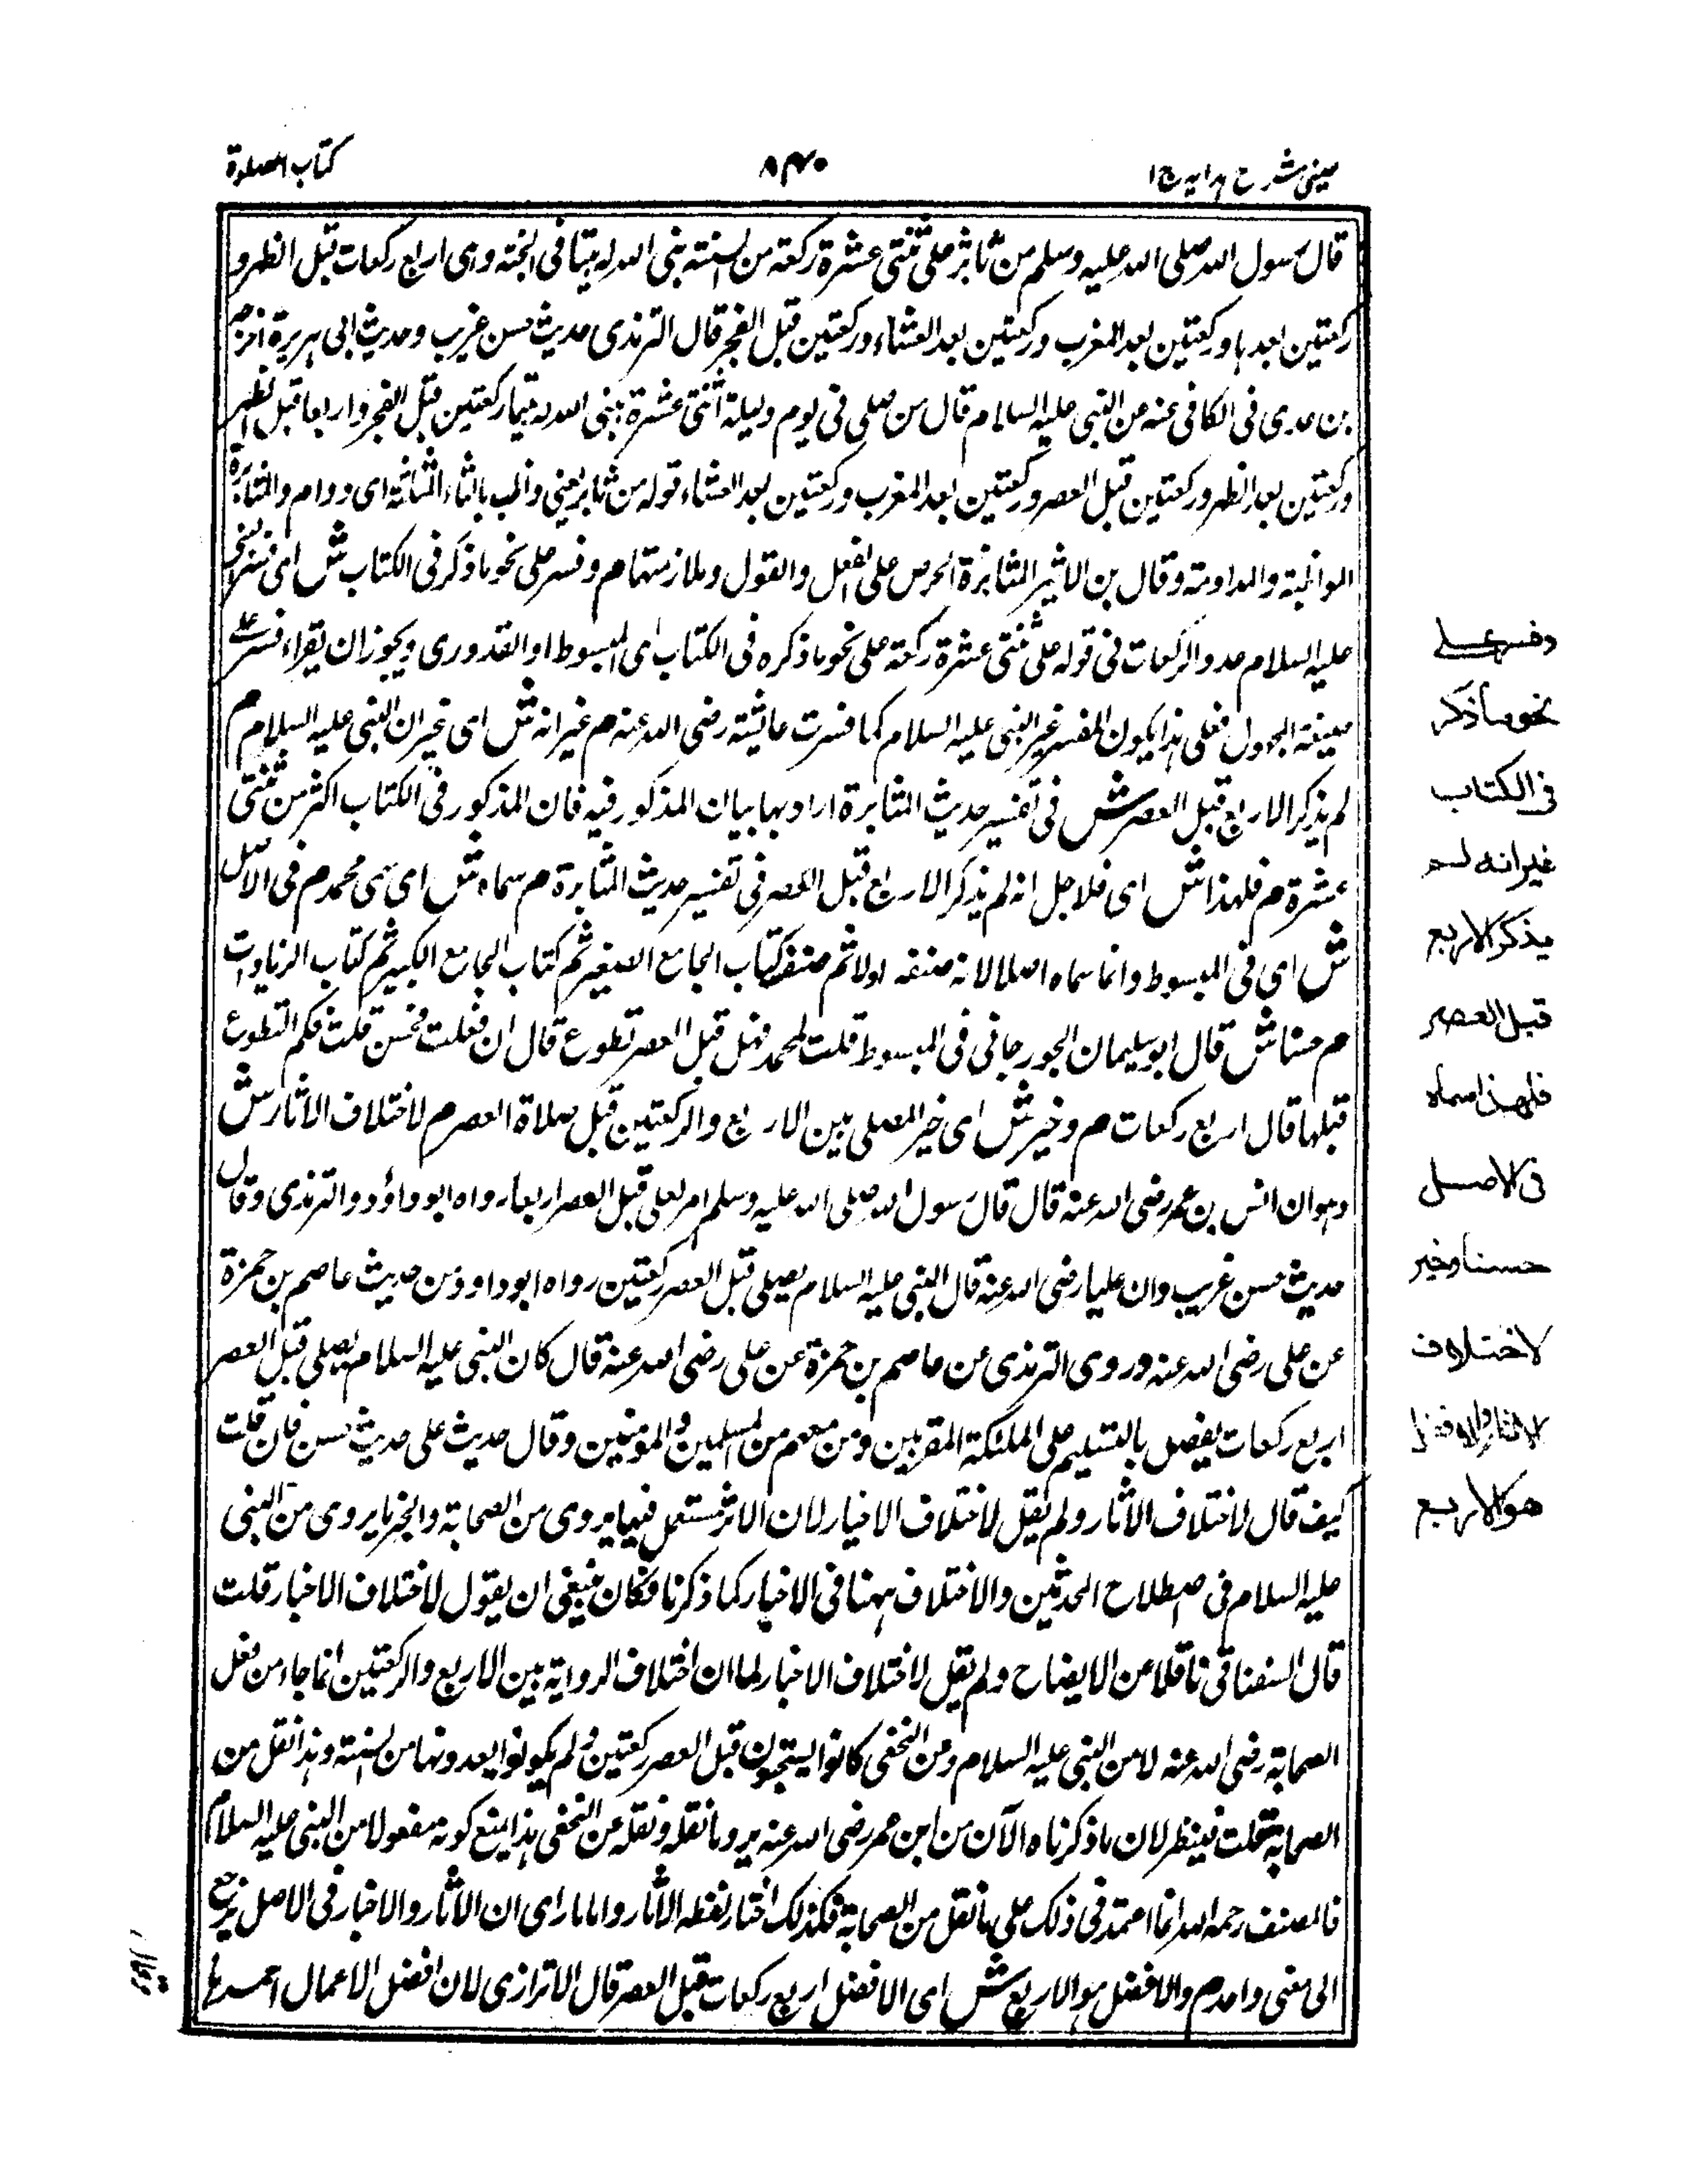 عینی شرح ہدایہ ج ا
۸۴۰
کتاب الصلوة
قال رسول الله صلى الله عليه وسلم من ثابر على ثنتى عشرة ركعة من السنة بنى الله له بيتا فى الجنة وهى اربع ركعات قبل الظهر و
ركعتين بعدها وركعتين بعد المغرب وركعتين بعد العشاء وركعتين قبل الفجر قال الترمذى حديث حسن غريب وحديث ابى هريرة اخرجه
بن عدى فى الكافى عنه عن النبى عليه السلام قال من صلى فى يوم وليلة اثنتى عشرة بنى الله له بيتا ركعتين قبل الفجر واربعا قبل الظهر
وركعتين بعد الظهر وركعتين قبل العصر وركعتين بعد المغرب وركعتين بعد العشاء قوله من ثابر يعنى واظب بالثاء المثلثة اى دوام والمثابرة
المواظبة والمداومة وقال بن الاثير المثابرة الحرص على الفعل والقول وملازمتها م وفسر على نحو ما ذكر فى الكتاب ش اى فسر النبى
عليه السلام عدد الركعات فى قوله على ثنتى عشرة ركعة على نحو ما ذكره فى الكتاب اى المبسوط او القدورى ويجوز ان يقراء فسر على
صيغة المجهول فعلى هذا يكون المفسر غير النبى عليه السلام كما فسرت عائشة رضى الله عنه م غير انه ش اى غير ان النبى عليه السلام م
لم يذكر الاربع قبل العصر ش فى تفسير حديث المثابرة اراد بها بيان المذكور فيه فان المذكور فى الكتاب اكثر من ثنتى
عشرة م فلهذا ش اى فلاجل انه لم يذكر الاربع قبل العصر فى تفسير حديث المثابرة م سماه ش اى سمى محمد م فى الاصل
ش اى فى المبسوط وانما سماه اصلا لانه صنفه اولا ثم صنف كتاب الجامع الصغير ثم كتاب الجامع الكبير ثم كتاب الزيادات
م حسنا ش قال ابو سليمان الجورجانى فى المبسوط قلت لمحمد فهل قبل العصر تطوع قال ان فعلت فحسن قلت فكم التطوع
قبلها قال اربع ركعات م وخير ش اى خير المصلى بين الاربع والركعتين قبل صلاة العصر م لاختلاف الاثار ش
وهو ان انس بن عمر رضى الله عنه قال قال رسول الله صلى الله عليه وسلم امر لعلى قبل العصر اربعا رواه ابو داؤد والترمذى وقال
حديث حسن غريب وان عليا رضى الله عنه قال النبى عليه السلام يصلى قبل العصر ركعتين رواه ابو داود من حديث عاصم بن حمزة
عن على رضى الله عنه وروى الترمذى عن عاصم بن حمزة عن على رضى الله عنه قال كان النبى عليه السلام يصلى قبل العصر
اربع ركعات يفصل بالتسليم على الملئكة المقربين ومن معهم من المسلمين والمومنين وقال حديث على حديث حسن فان قلت
كيف قال لاختلاف الاثار ولم يقل لاختلاف الاخبار لان الاثر مستعمل فيما يروى من الصحابة والخبر ما يروى من النبى
عليه السلام فى اصطلاح المحدثين والاختلاف ههنا فى الاخبار كما ذكرنا فكان ينبغى ان يقول لاختلاف الاخبار قلت
قال السغناقى ناقلا من الايضاح ولم يقل لاختلاف الاخبار لما ان اختلاف الرواية بين الاربع والركعتين انما جاء من فعل
الصحابة رضى الله عنه لا من النبى عليه السلام وعن النخفى كانوا يستحبون قبل العصر ركعتين ولم يكونوا يعدونها من السنة وهذا نقل من
الصحابة قلت فيه نظر لان ما ذكرناه الآن من ابن عمر رضى الله عنه يرد ما نقله ونقله عن النخفى هذا يمنع كونه مفعولا من النبى عليه السلام
فالمصنف رحمه الله انما اعتمد فى ذلك على ما نقل من الصحابة فكذلك اختار لفظه الاثار واما ما راى ان الاثار والاخبار فى الاصل يرجع
الى معنى واحد م والافضل هو الاربع ش اى الافضل اربع ركعات قبل العصر قال الاترازى لان افضل الاعمال احمدها
وفسر على
نحو ما ذكر
فى الكتاب
غير انه لم
يذكر الاربع
قبل العصر
فلهذا سماه
فى الاصل
حسنا وخير
لاختلاف
الاثار والافضل
هو الاربع